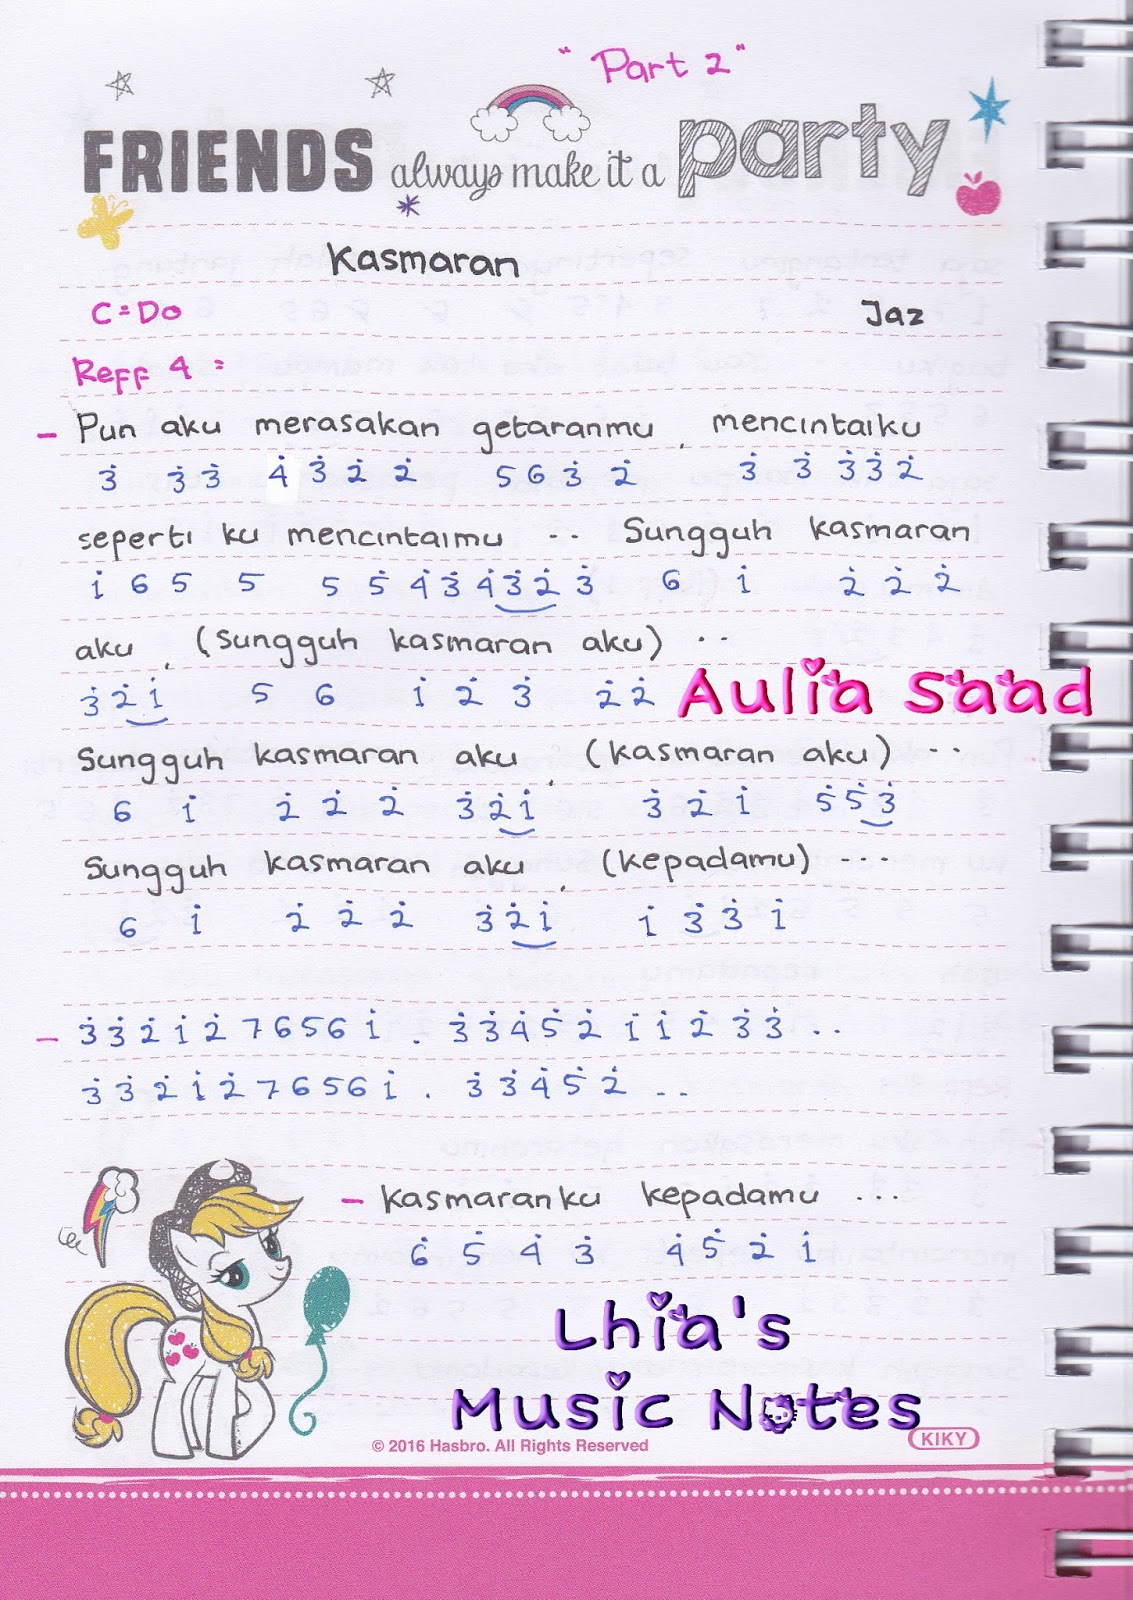 "Part 2"
FRIENDS always make it a party
Kasmaran
C = Do Jaz
Reff 4 :
- Pun aku merasakan getaranmu , mencintaiku
3̇ 3̇ 3̇ 4̇ 3̇ 2̇ 2̇ 5 6 3̇ 2̇ 3̇ 3̇ 3̇ 3̇ 2̇
seperti ku mencintaimu .. Sungguh kasmaran
1̇ 6 5 5 5 5̇ 4̇ 3̇ 4̇ 3̇ 2̇ 3̇ 6 1̇ 2̇ 2̇ 2̇
aku , (Sungguh kasmaran aku) ..
3̇ 2̇ 1̇ 5 6 1̇ 2̇ 3̇ 2̇ 2̇
Aulia Saad
Sungguh kasmaran aku , (kasmaran aku) ..
6 1̇ 2̇ 2̇ 2̇ 3̇ 2̇ 1̇ 3̇ 2̇ 1̇ 5̇ 5̇ 3̇
Sungguh kasmaran aku , (kepadamu) ...
6 1̇ 2̇ 2̇ 2̇ 3̇ 2̇ 1̇ 1̇ 3̇ 3̇ 1̇
- 3̇ 3̇ 2̇ 1̇ 2̇ 7 6 5 6 1̇ . 3̇ 3̇ 4̇ 5̇ 2̇ 1̇ 1̇ 2̇ 3̇ 3̇ ..
3̇ 3̇ 2̇ 1̇ 2̇ 7 6 5 6 1̇ . 3̇ 3̇ 4̇ 5̇ 2̇ ..
- Kasmaranku kepadamu ...
6̇ 5̇ 4̇ 3̇ 4̇ 5̇ 2̇ 1̇
Lhia's
Music Notes
© 2016 Hasbro. All Rights Reserved
KIKY